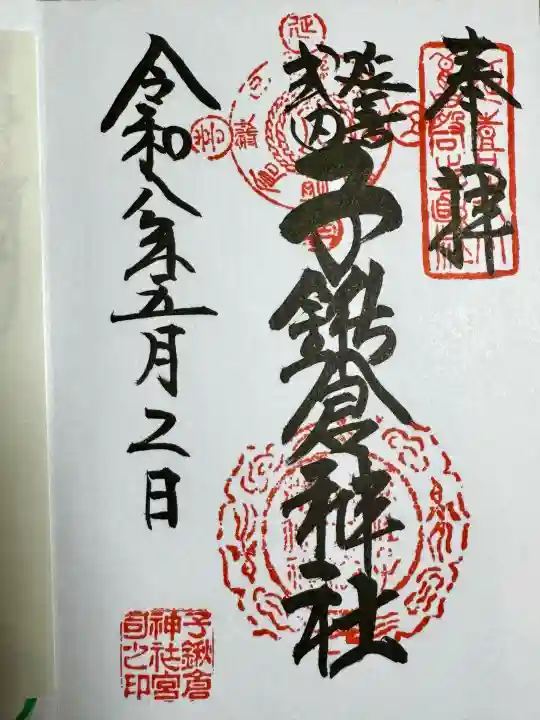 奉拝
延喜
式内
子鍬倉神社
令和八年五月二日
子鍬倉
神社宮
司之印